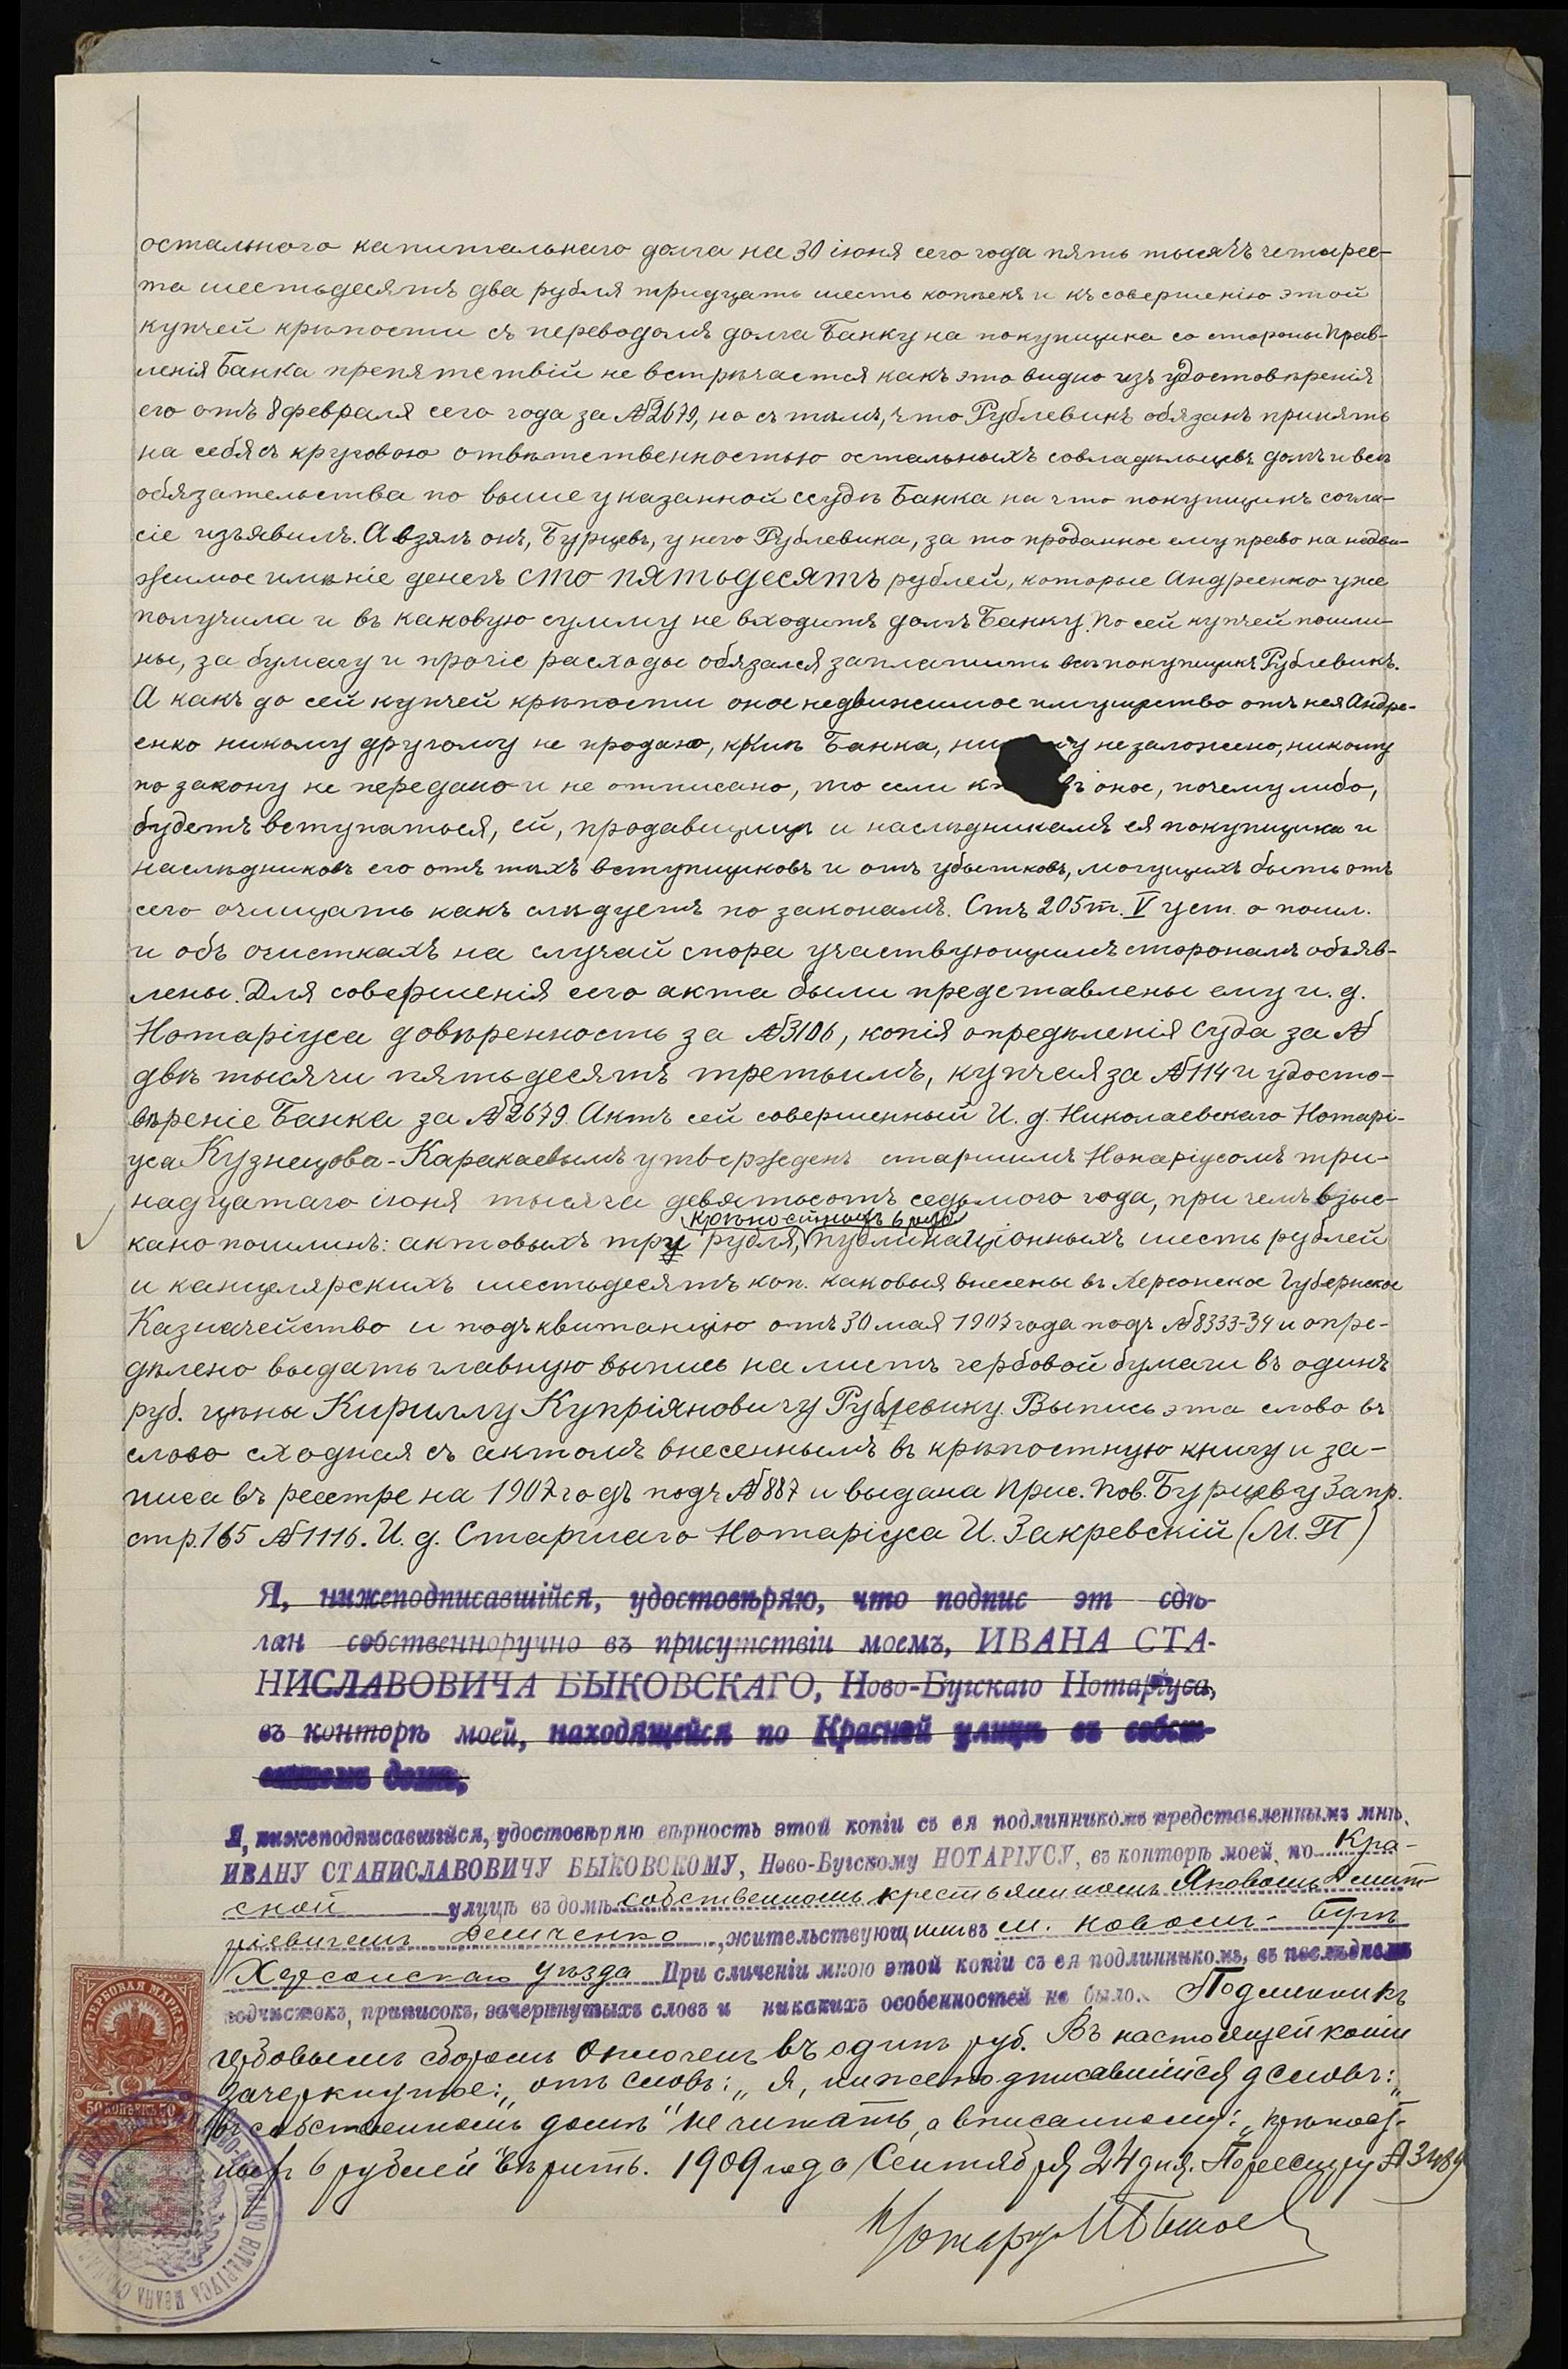 остального капитальнаго долга на 30 іюня сего года пять тысячъ четырес-
та шестьдесятъ два рубля тридцать шесть копѣекъ и къ совершенію этой
купчей крѣпости съ переводомъ долга Банку на покупщика со стороны Прав-
ленія Банка препятствій не встрѣчается какъ это видно изъ удостовѣренія
его отъ 8 февраля сего года за №2679, но съ тѣмъ, что Рублевикъ обязанъ принять
на себя съ круговою отвѣтственностью остальныхъ совладѣльцевъ долгъ и всѣ
обязательства по выше указанной ссудѣ Банка на что покупщикъ согла-
сіе изъявилъ. А взялъ онъ, Бурцевъ, у него Рублевика, за то проданное ему право на недви-
жимое имѣніе денегъ сто пятьдесятъ рублей, которые Андреенко уже
получила и въ каковую сумму не входитъ долгъ Банку. По сей купчей пошли-
ны, за бумагу и прочіе расходы обязался заплатить всѣ покупщикъ Рублевикъ.
А какъ до сей купчей крѣпости оное недвижимое имущество отъ нея Андре-
енко никому другому не продано, кромѣ Банка, никому не заложено, никому
по закону не передано и не отписано, то если кто въ оное, почему либо,
будетъ вступаться, ей, продавщицѣ и наслѣдникамъ ея покупщика и
наслѣдниковъ его отъ тѣхъ вступщиковъ и отъ убытковъ, могущихъ быть отъ
сего очищать какъ слѣдуетъ по законамъ. Стъ 205 т. V уст. о пошл.
и объ очисткахъ на случай спора участвующимъ сторонамъ объяв-
лены. Для совершенія сего акта были представлены ему и. д.
Нотаріуса довѣренность за №3106, копія опредѣленія суда за №
двѣ тысячи пятьдесятъ третьимъ, купчая за №114 и удосто-
вѣреніе Банка за №2679. Актъ сей совершенный И. д. Николаевскаго Нотарі-
уса Кузнецова-Каракаевымъ утвержденъ старшимъ Нотаріусомъ три-
надцатаго іюня тысяча девятьсотъ седьмого года, при чемъ взыс-
крѣпостныхъ 6 руб.
кано пошлинъ: актовыхъ три рубля, публикаціонныхъ шесть рублей
и канцелярскихъ шестьдесятъ коп. каковыя внесены въ Херсонское Губернское
Казначейство и подъ квитанцію отъ 30 мая 1907 года подъ №8333-34 и опре-
дѣлено выдать главную выпись на листъ гербовой бумаги въ одинъ
руб. цѣны Кириллу Купріяновичу Рублевику. Выпись эта слово въ
слово сходная съ актомъ внесеннымъ въ крѣпостную книгу и за-
писа въ реестре на 1907 годъ подъ №887 и выдана Прис. Пов. Бурцеву Запр.
стр. 165 №1116. И. д. Старшаго Нотаріуса И. Закревскій (М. П)
Я, нижеподписавшійся, удостовѣряю, что подпис эт сдѣ-
лан собственноручно въ присутствіи моемъ, ИВАНА СТА-
НИСЛАВОВИЧА БЫКОВСКАГО, Ново-Бугскаго Нотаріуса,
въ конторѣ моей, находящейся по Красной улицѣ въ собст-
венномъ домѣ,
Я, нижеподписавшійся, удостовѣряю вѣрность этой копіи съ ея подлинникомъ представленнымъ мнѣ,
ИВАНУ СТАНИСЛАВОВИЧУ БЫКОВСКОМУ, Ново-Бугскому НОТАРІУСУ, въ конторѣ моей, по Кра-
сной улицѣ въ домѣ собственномъ крестьяниномъ Яковомъ Демит-
ріевичемъ Демченко, жительствующимъ въ м. Новомъ-Бугѣ
Херсонскаго уѣзда При сличеніи мною этой копіи съ ея подлинникомъ, въ послѣднемъ
подчистокъ, приписокъ, зачеркнутыхъ словъ и никакихъ особенностей не было. Подлинникъ
гербовымъ сборомъ оплоченъ въ одинъ руб. Въ настоящей копіи
зачеркнутое: „отъ словъ: „я, нижеподписавшійся до словъ:
въ собственномъ домѣ" не читать, а вписанному: „крѣпост-
ныхъ 6 рублей" вѣрить. 1909 года Сентября 24 дня. По реестру № 3489
Нотаріусъ
ГЕРБОВАЯ МАРКА
50 КОПѢЕКЪ 50